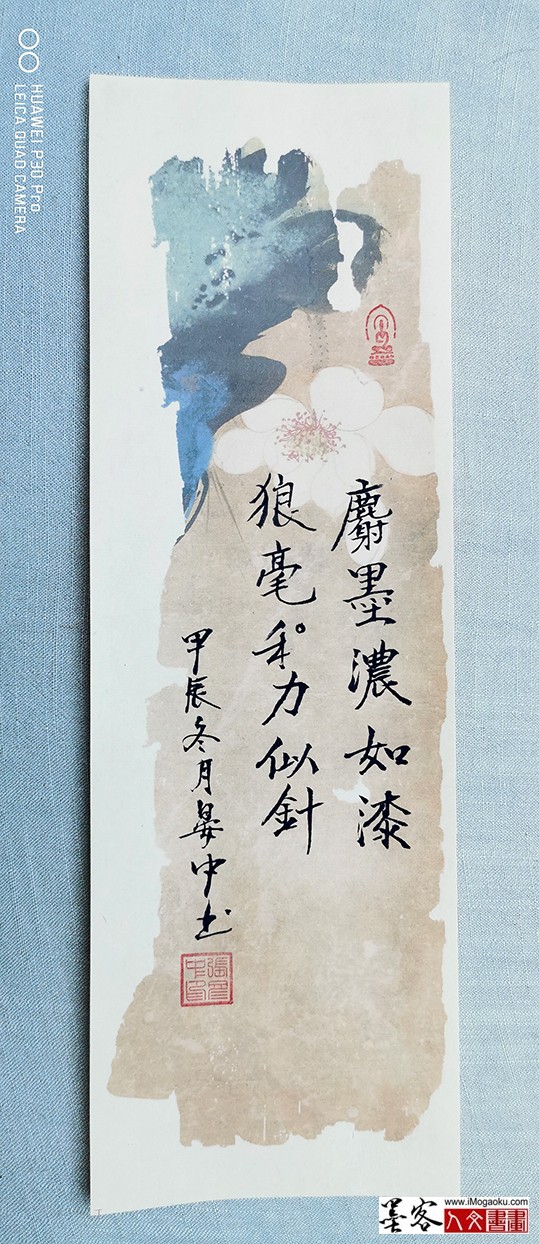 HUAWEI P30 Pro
LEICA QUAD CAMERA
麝墨濃如漆
狼毫禾力似針
甲辰冬月晏中书
張晏中印
墨客
www.iMogaoku.com
人文書畫